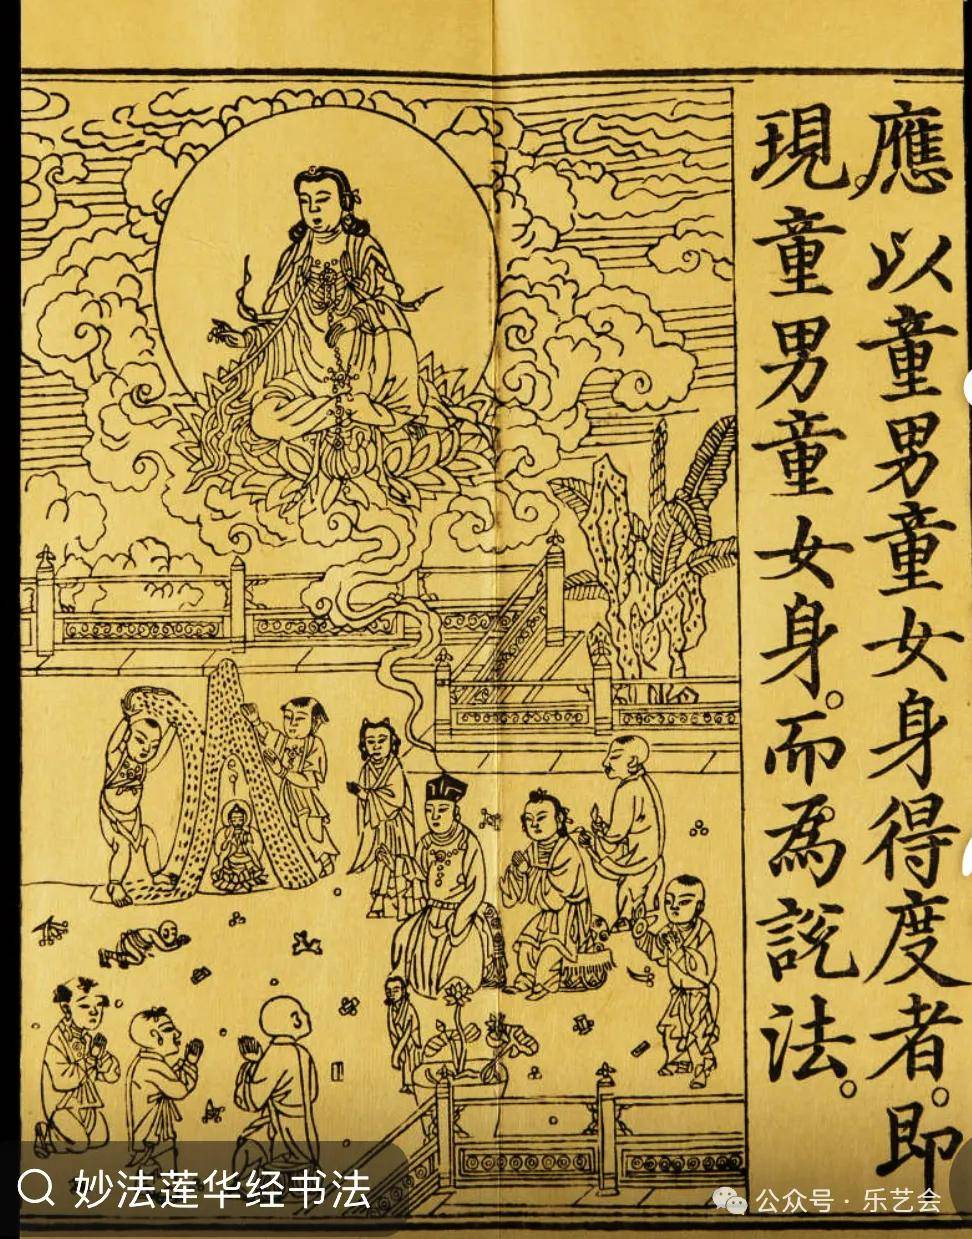 應以童男童女身得度者。即
現童男童女身。而為說法。
妙法莲华经书法
公众号·乐艺会